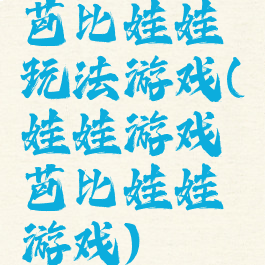 芭比娃娃
玩法游戏(
娃娃游戏
芭比娃娃
游戏)